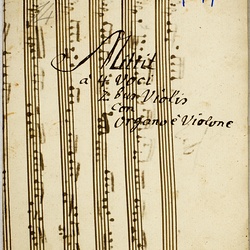 Mittit
à 4 Voci
2 bus Violis
con
Organo è Violone